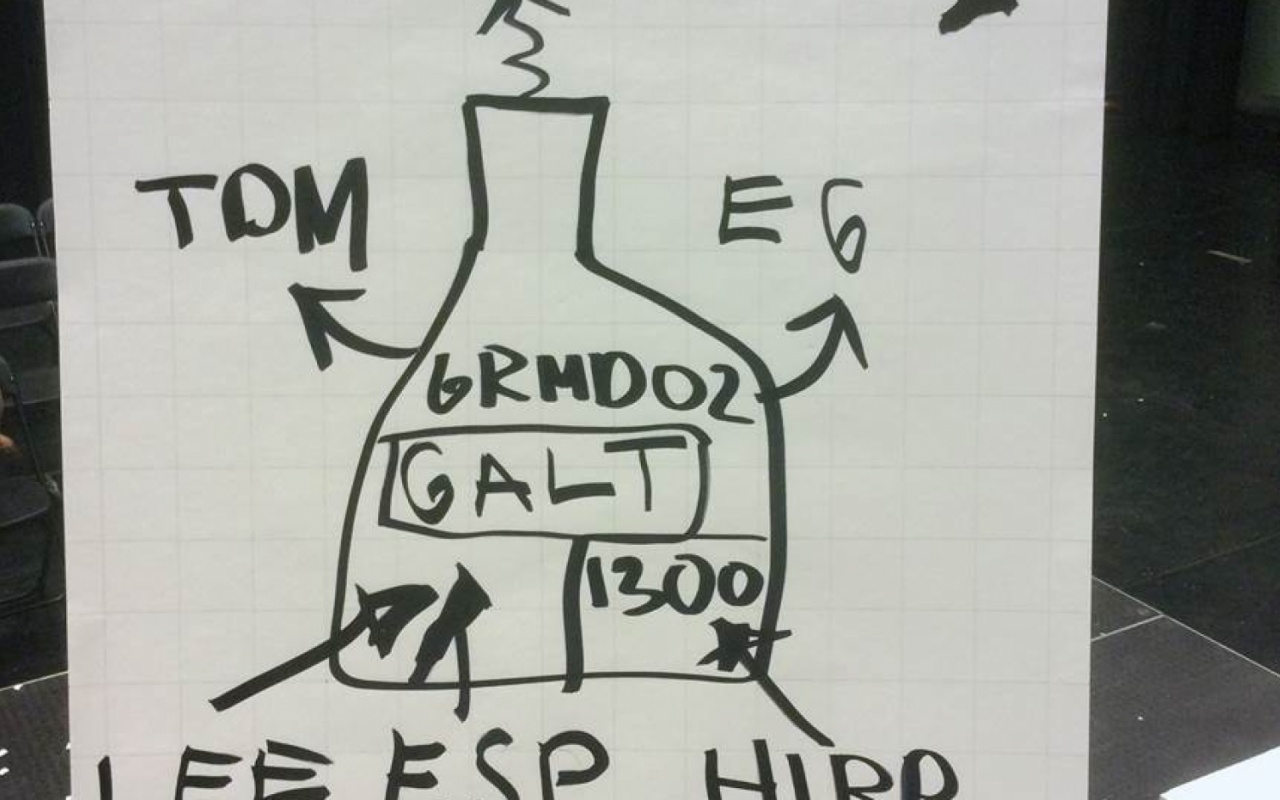 TOM
EG
GRMD02
GALT
1300
LEE ESP HIRD